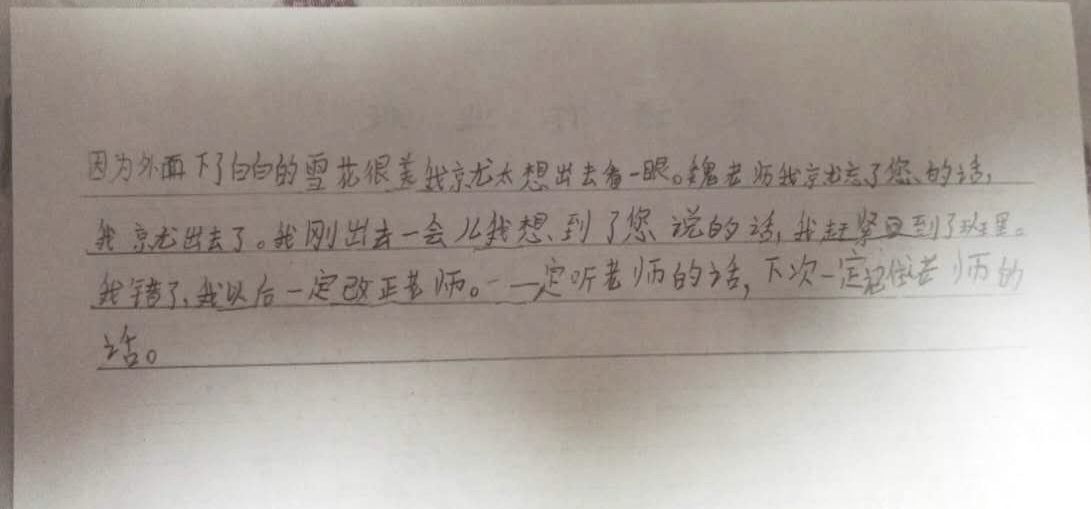 因为外面下了白白的雪花很美我就太想出去看一眼。魏老师我就忘了您的话,
我就出去了。我刚出去一会儿我想到了您说的话,我赶紧回到了班里。
我错了,我以后一定改正老师。一定听老师的话,下次一定记住老师的
话。